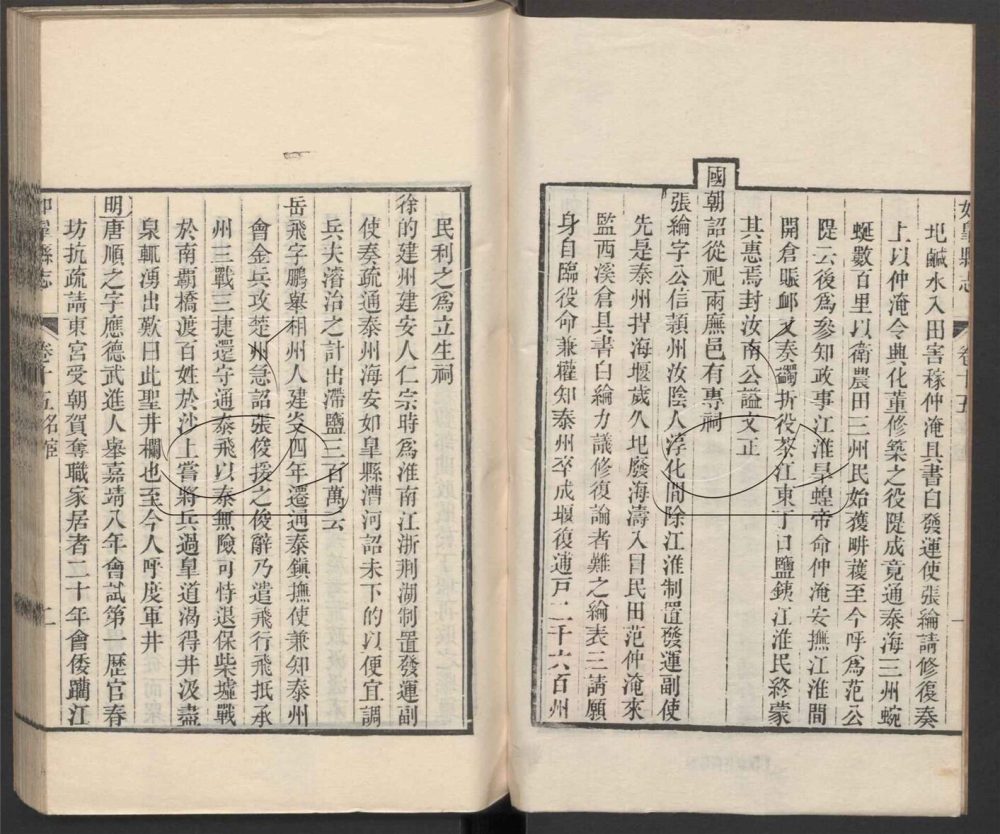 如皐縣志 卷十五
圯鹹水入田害稼仲淹具書白發運使張綸請修復奏
上以仲淹令典化董修築之役隄成竟通泰海三州蜿
蜒數百里以衛農田三州民始獲畊穫至今呼爲范公
隄云後爲參知政事江淮旱蝗帝命仲淹安撫江淮間
開倉賑卹又奏蠲折役茶江東丁口鹽錢江淮民終蒙
其惠焉封汝南公謚文正
國朝詔從祀兩廡邑有專祠
張綸字公信潁州汝陰人淳化間除江淮制置發運副使
先是泰州捍海堰歲久圯廢海濤入目民田范仲淹來
監西溪倉具書白綸力議修復論者難之綸表三請願
身自臨役命兼權知泰州卒成堰復逋戸二千六百州
民利之爲立生祠
徐的建州建安人仁宗時爲淮南江浙荆湖制置發運副
使奏疏通泰州海安如皐縣漕河詔未下的以便宜調
兵夫濬治之計出滯鹽三百萬云
岳飛字鵬舉相州人建炎四年遷通泰鎭撫使兼知泰州
會金兵攻楚州急詔張俊援之俊辭乃遣飛行飛抵承
州三戰三捷還守通泰飛以泰無險可恃退保柴墟戰
於南霸橋渡百姓於沙上嘗將兵過皐道渴得井汲盡
泉輒湧出歎曰此聖井欄也至今人呼度軍井
明唐順之字應德武進人舉嘉靖八年會試第一歷官春
坊抗疏請東宮受朝賀奪職家居者二十年會倭躪江
如皐縣志 卷十五名宦 二